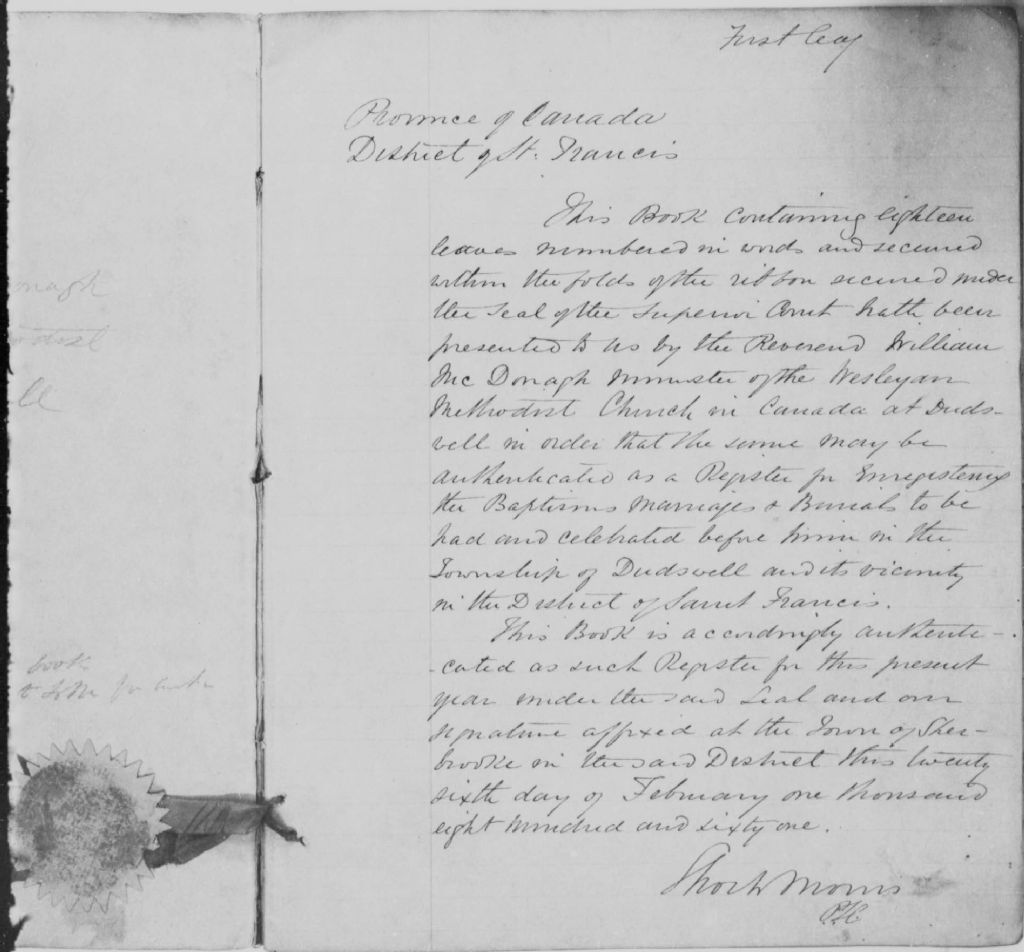 onagh
odist
ll
book
First leaf
Province of Canada
District of St. Francis
This Book containing eighteen
leaves numbered in words and secured
within the folds of the ribbon secured under
the Seal of the Superior Court hath been
presented to us by the Reverend William
Mc Donagh minister of the Wesleyan
Methodist Church in Canada at Duds-
well in order that the same may be
authenticated as a Register for Enregistering
the Baptisms marriages & Burials to be
had and celebrated before him in the
Township of Dudswell and its vicinity
in the District of Saint Francis.
This Book is accordingly authenti-
-cated as such Register for this present
year under the said Seal and our
signature affixed at the Town of Sher-
brooke in the said District this twenty
sixth day of February one thousand
eight hundred and sixty one.
Short & Morris